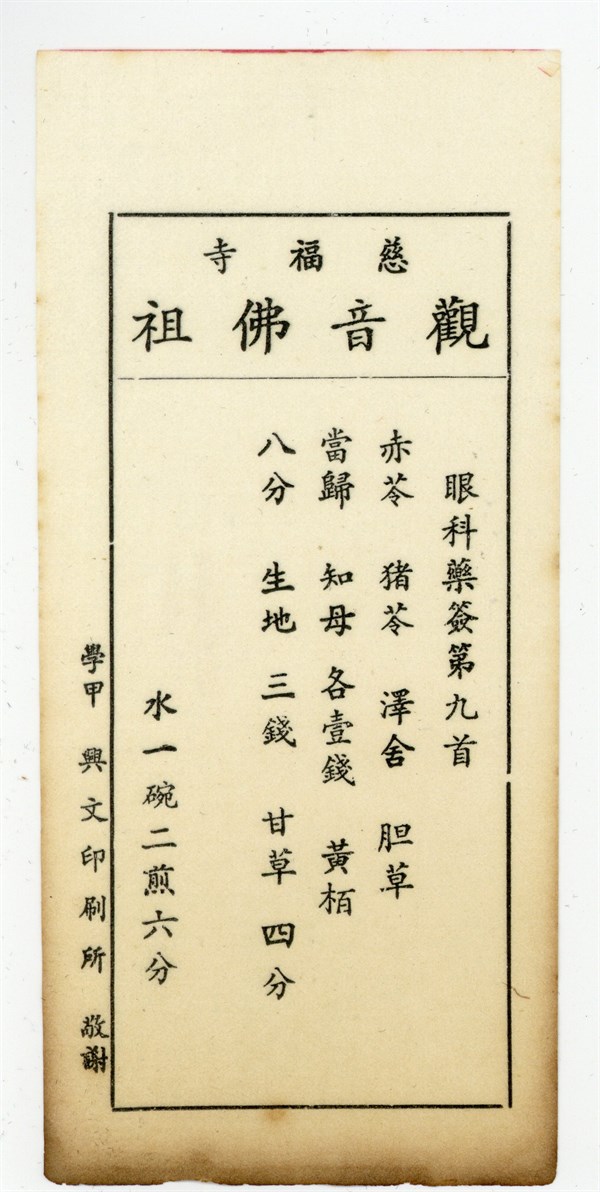 慈福寺
觀音佛祖
眼科藥簽第九首
赤苓 猪苓 澤舍 胆草
當歸 知母 各壹錢 黃栢
八分 生地 三錢 甘草 四分
水一碗二煎六分
學甲 興文印刷所 敬謝